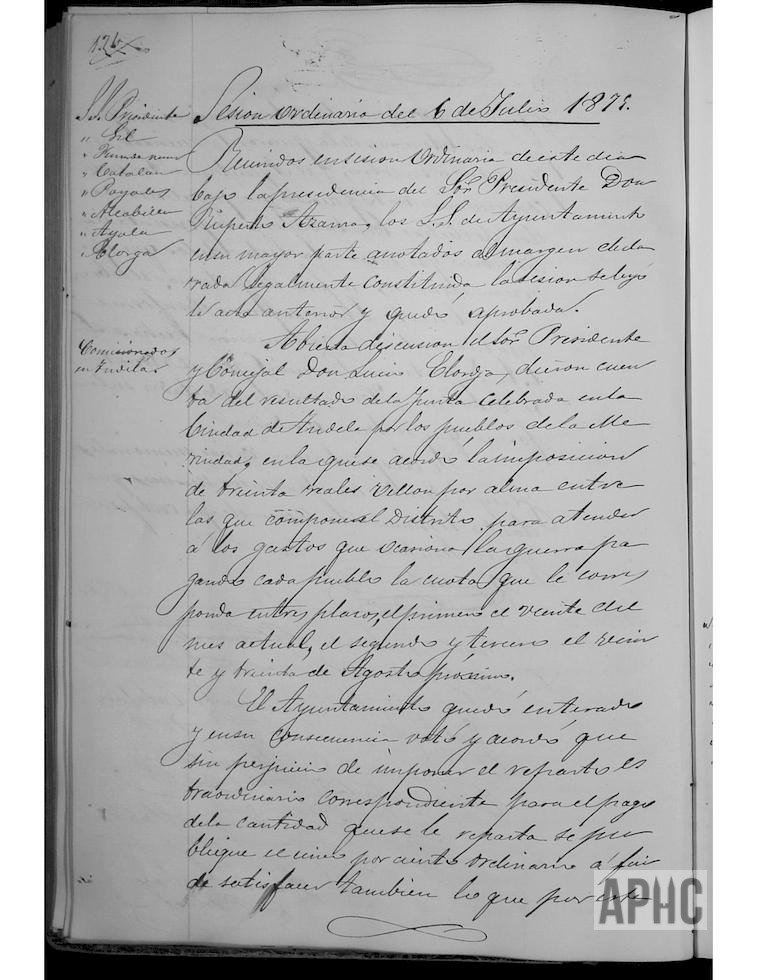 126
S.S. Presidente
" Gil
" Catalan
" Poyales
" Alcabilla
" Ayala
" Elorga
Comisionados
en Tudela
Sesion ordinaria del 6 de Julio 1875.
Reunidos en sision ordinaria de este dia
bajo la presidencia del Sor. Presidente Don
Ruperto Azarra, los S.S. de Ayuntamiento
en su mayor parte anotados al margen decla
rada legalmente constituida la sesion se leyó
la acta anterior y quedó aprobada.
Abierta discusion el Sor. Presidente
y Concejal Don Luis Elorga, dieron cuen
ta del resultado de la Junta celebrada en la
Ciudad de Tudela por los pueblos de la Me
rindad, en la que se acordó la imposicion
de treinta reales vellon por alma entre
las que componen el Distrito para atender
á los gastos que ocasiona la guerra pa
gando cada pueblo la cuota que le corres
ponda en tres plazos, el primero el veinte del
mes actual, el segundo y tercero el vein
te y treinta de Agosto prossimo.
El Ayuntamiento quedó enterado
y en su consecuencia votó y acordó que
sin perjuicio de imponer el reparto es
traordinario correspondiente para el pago
de la cantidad que se le reparta se pu
blique el cinco por ciento ordinario á fin
de satisfacer tambien lo que por este
APHC